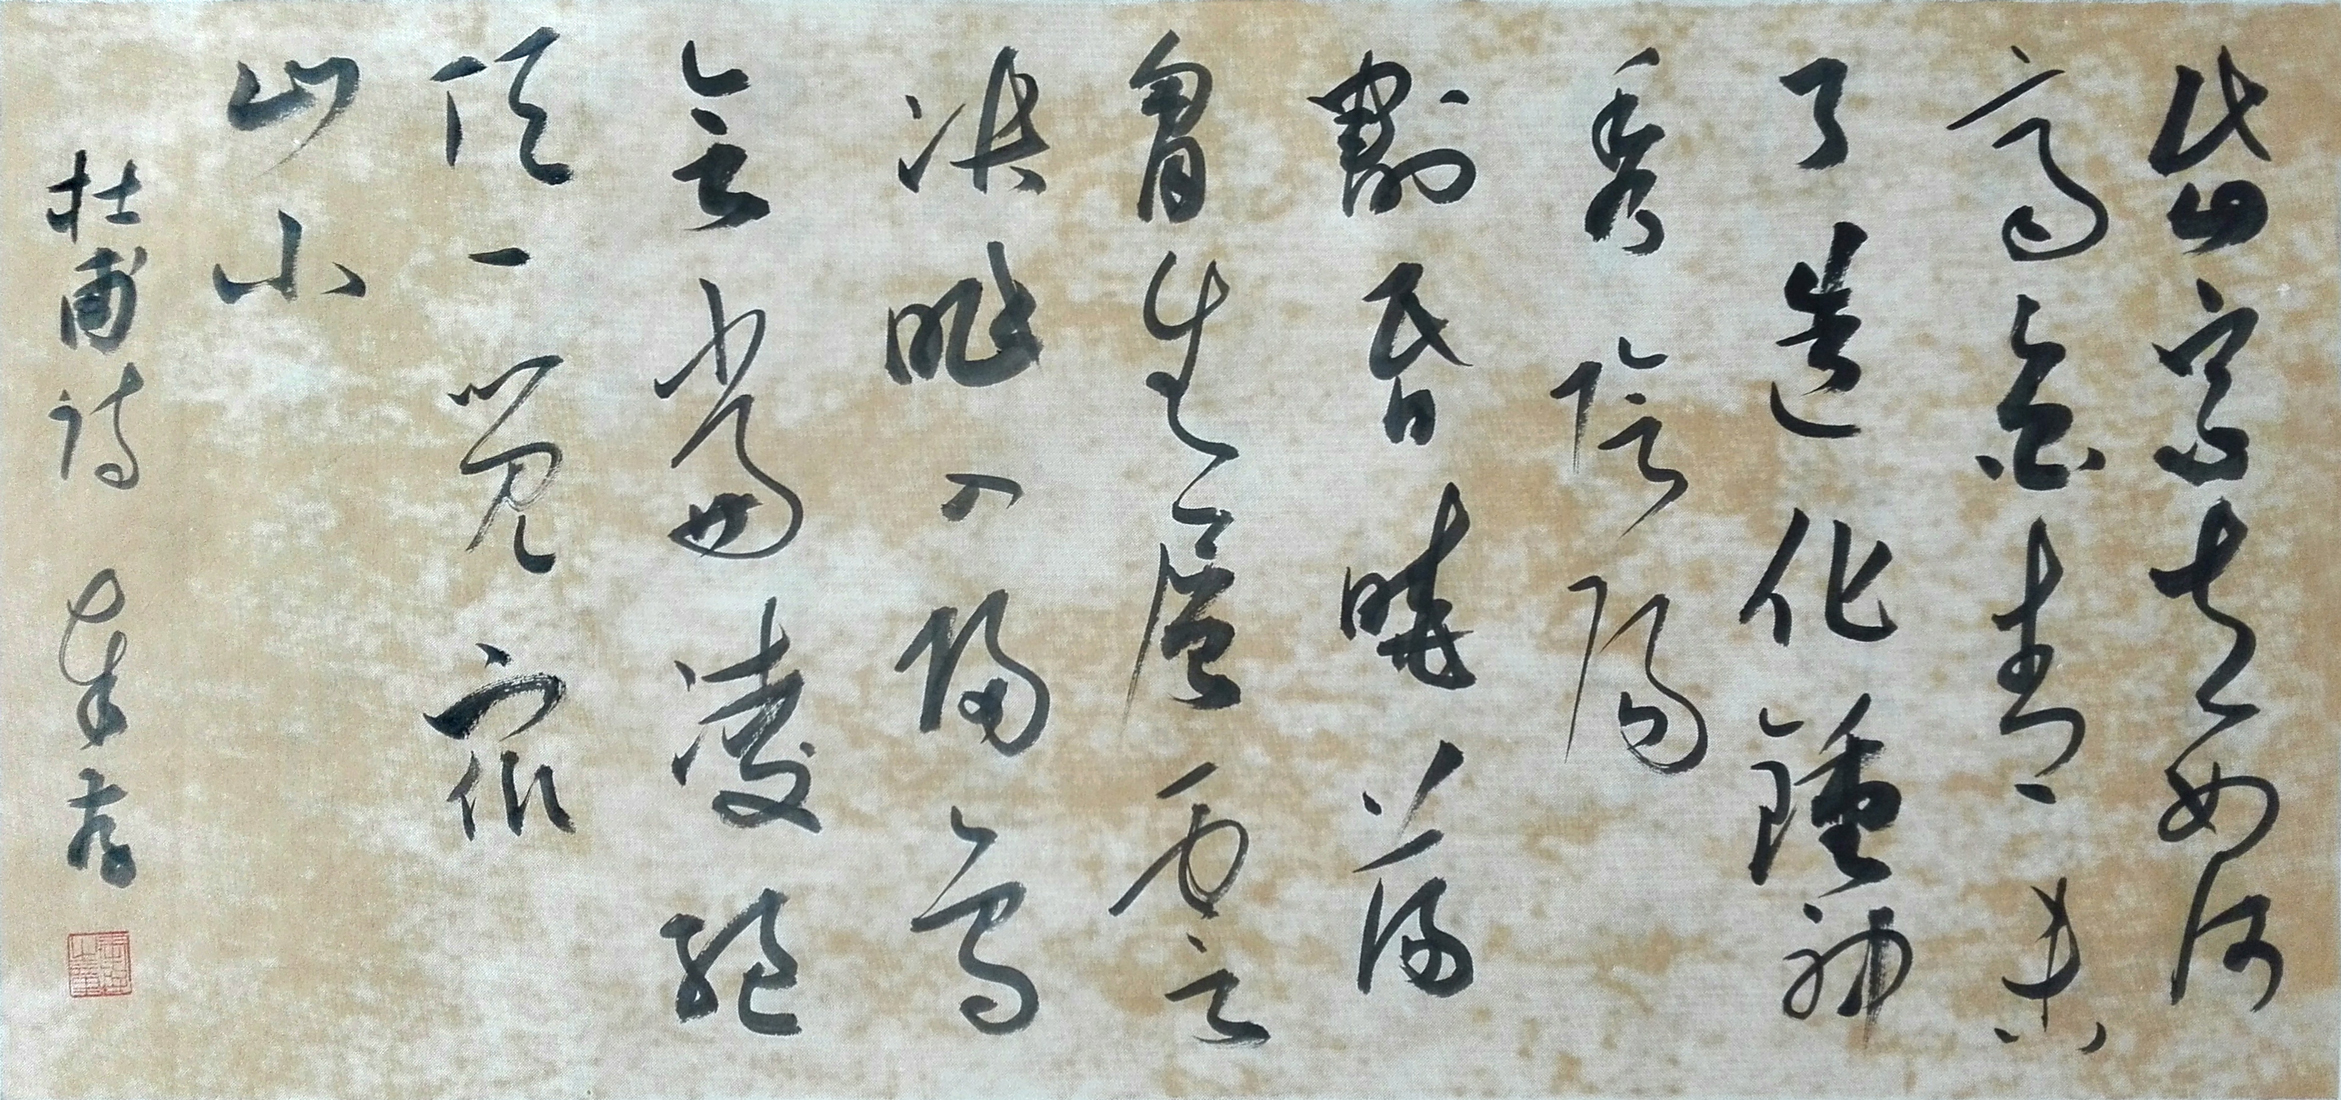 岱宗夫如何
齊魯青未
了造化鍾神
秀陰陽
割昏曉蕩
胷生層雲
决眦入歸鳥
會當凌絕
頂一覽衆
山小
杜甫詩